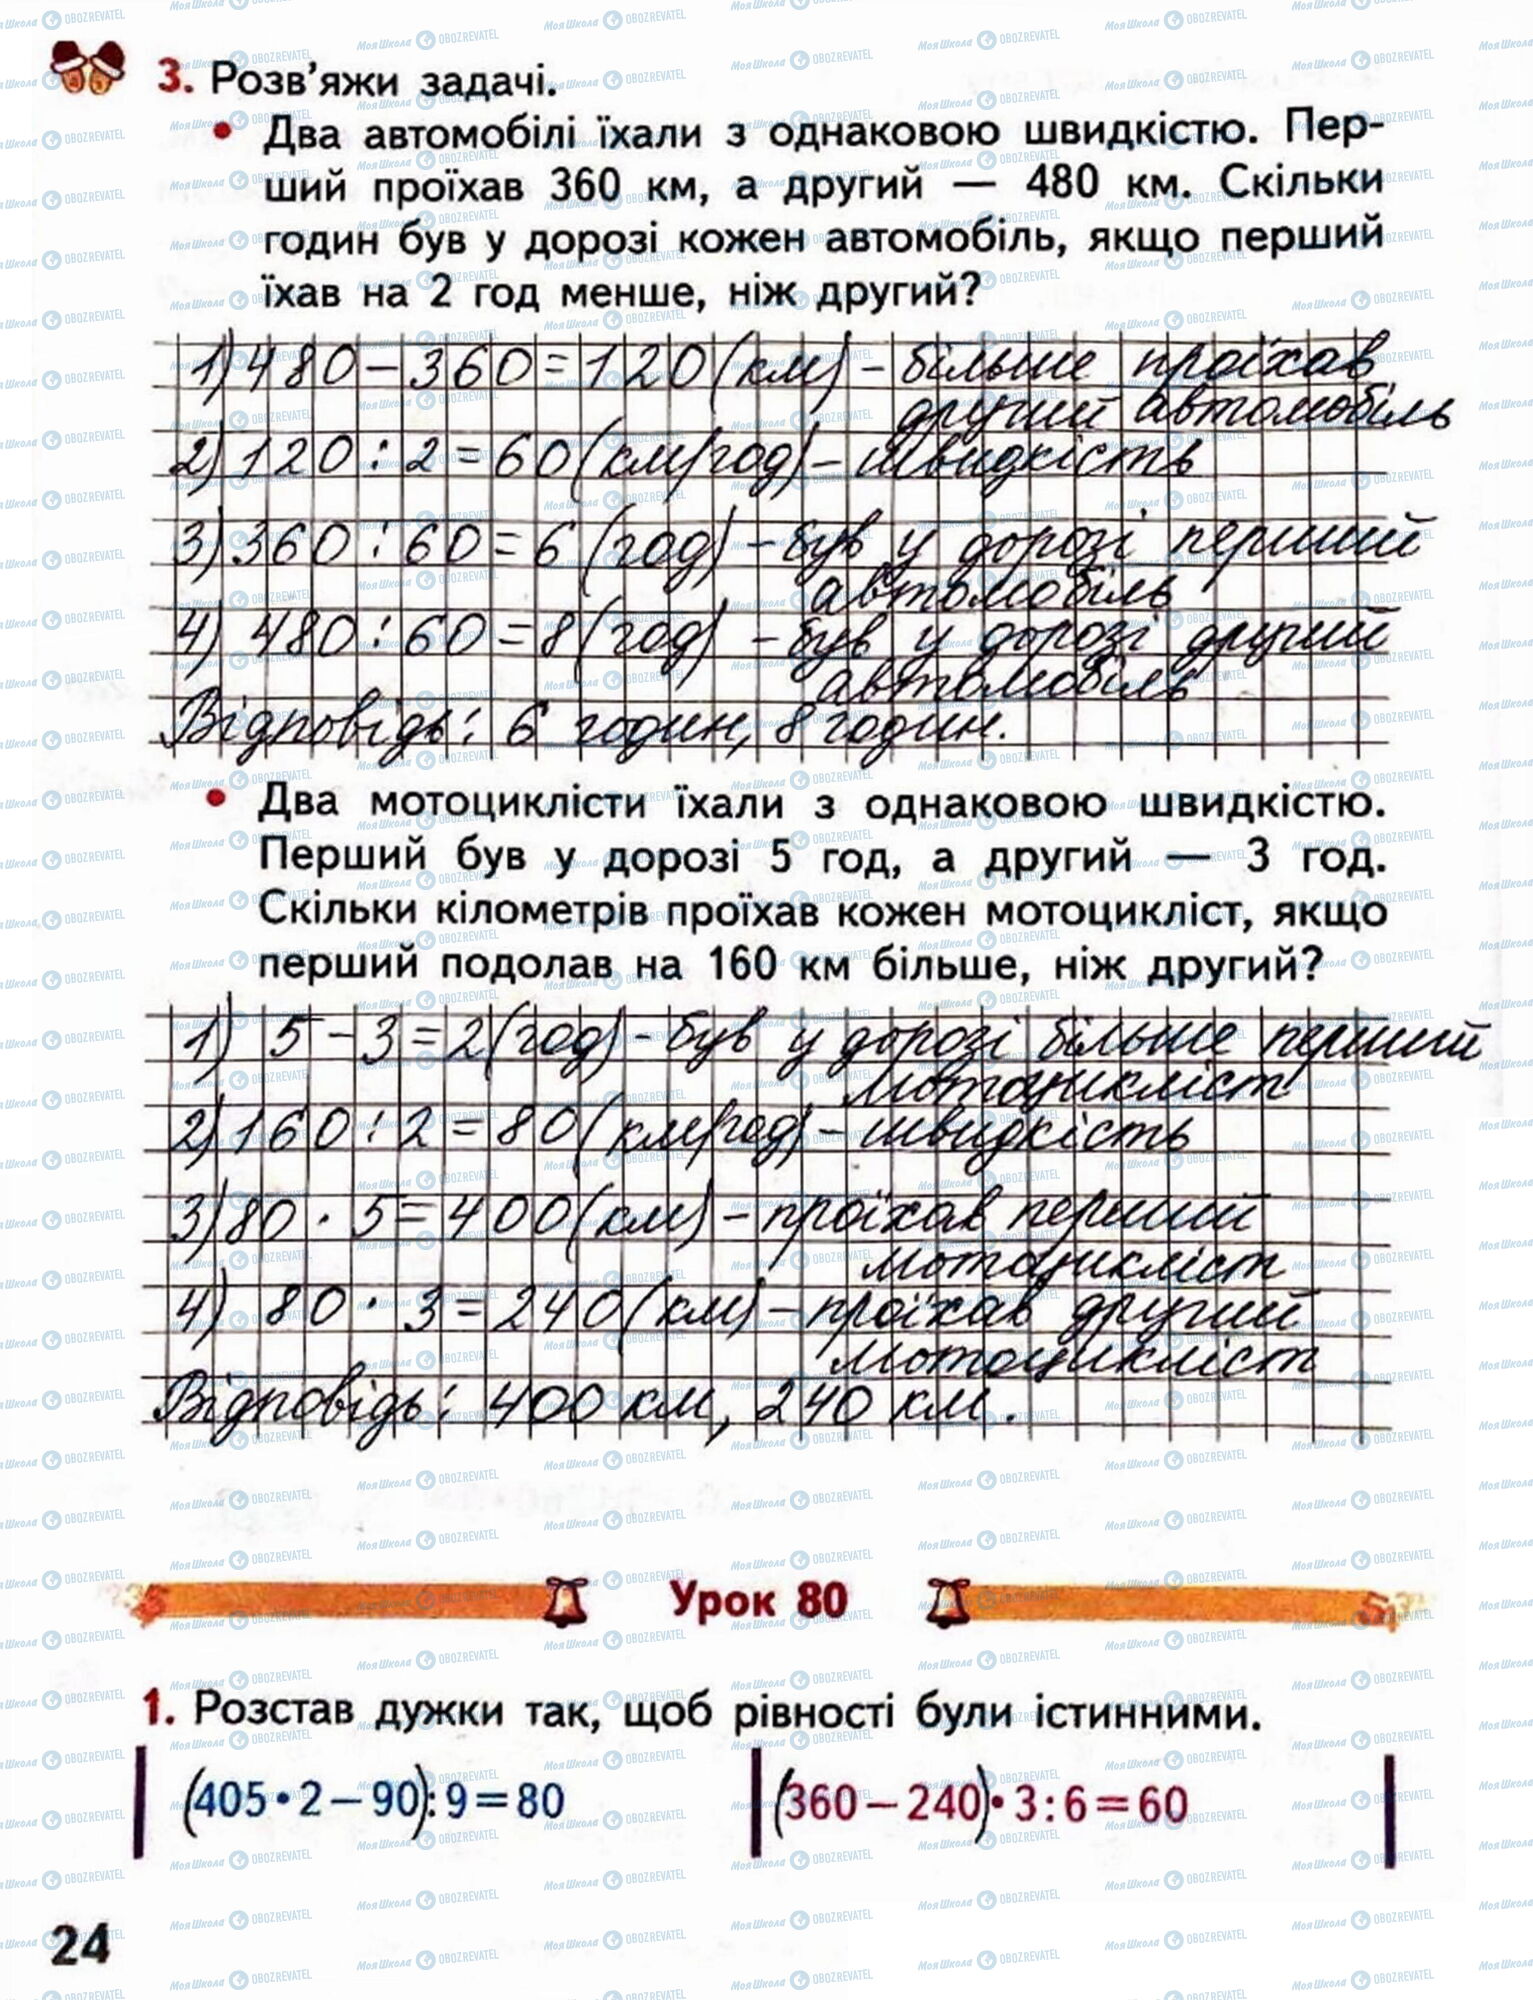 3. Розв'яжи задачі.
• Два автомобілі їхали з однаковою швидкістю. Пер-
ший проїхав 360 км, а другий — 480 км. Скільки
годин був у дорозі кожен автомобіль, якщо перший
їхав на 2 год менше, ніж другий?
1) 480 - 360 = 120 (км) - більше проїхав
другий автомобіль
2) 120 : 2 = 60 (км/год) - швидкість
3) 360 : 60 = 6 (год) - був у дорозі перший
автомобіль
4) 480 : 60 = 8 (год) - був у дорозі другий
автомобіль
Відповідь: 6 годин, 8 годин.
• Два мотоциклісти їхали з однаковою швидкістю.
Перший був у дорозі 5 год, а другий — 3 год.
Скільки кілометрів проїхав кожен мотоцикліст, якщо
перший подолав на 160 км більше, ніж другий?
1) 5 - 3 = 2 (год) - був у дорозі більше перший
мотоцикліст
2) 160 : 2 = 80 (км/год) - швидкість
3) 80 · 5 = 400 (км) - проїхав перший
мотоцикліст
4) 80 · 3 = 240 (км) - проїхав другий
мотоцикліст
Відповідь: 400 км, 240 км.
Урок 80
1. Розстав дужки так, щоб рівності були істинними.
(405 • 2 – 90) : 9 = 80
(360 – 240) • 3 : 6 = 60
24
МояШкола OBOZREVATEL